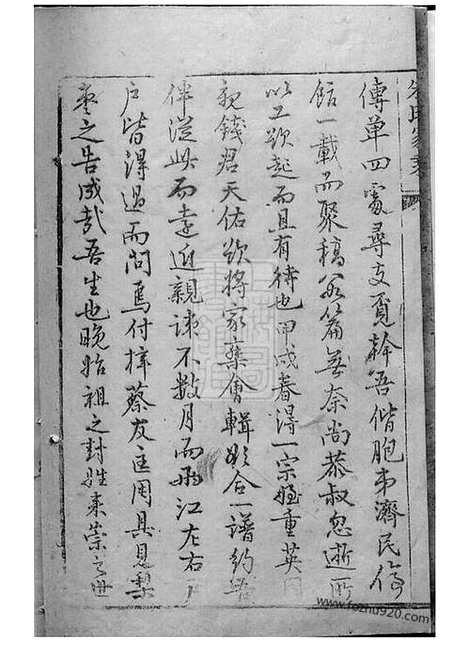 傳单四處尋支覓幹吾偕胞弟濟民停
館一載而聚稿若篇無奈尚恭叔忽逝所
以工欲起而且有待也甲戌春得一宗姪重英
親錢君天佑欲將家乘會輯欲合一譜約
伴從此而遠近親疎不数月而兩江左右戶
戶皆得過而問焉付梓蔡友匡用具見梨
棗之告成哉吾生也晚始祖之封姓来崇之世
www.fozhu920.com